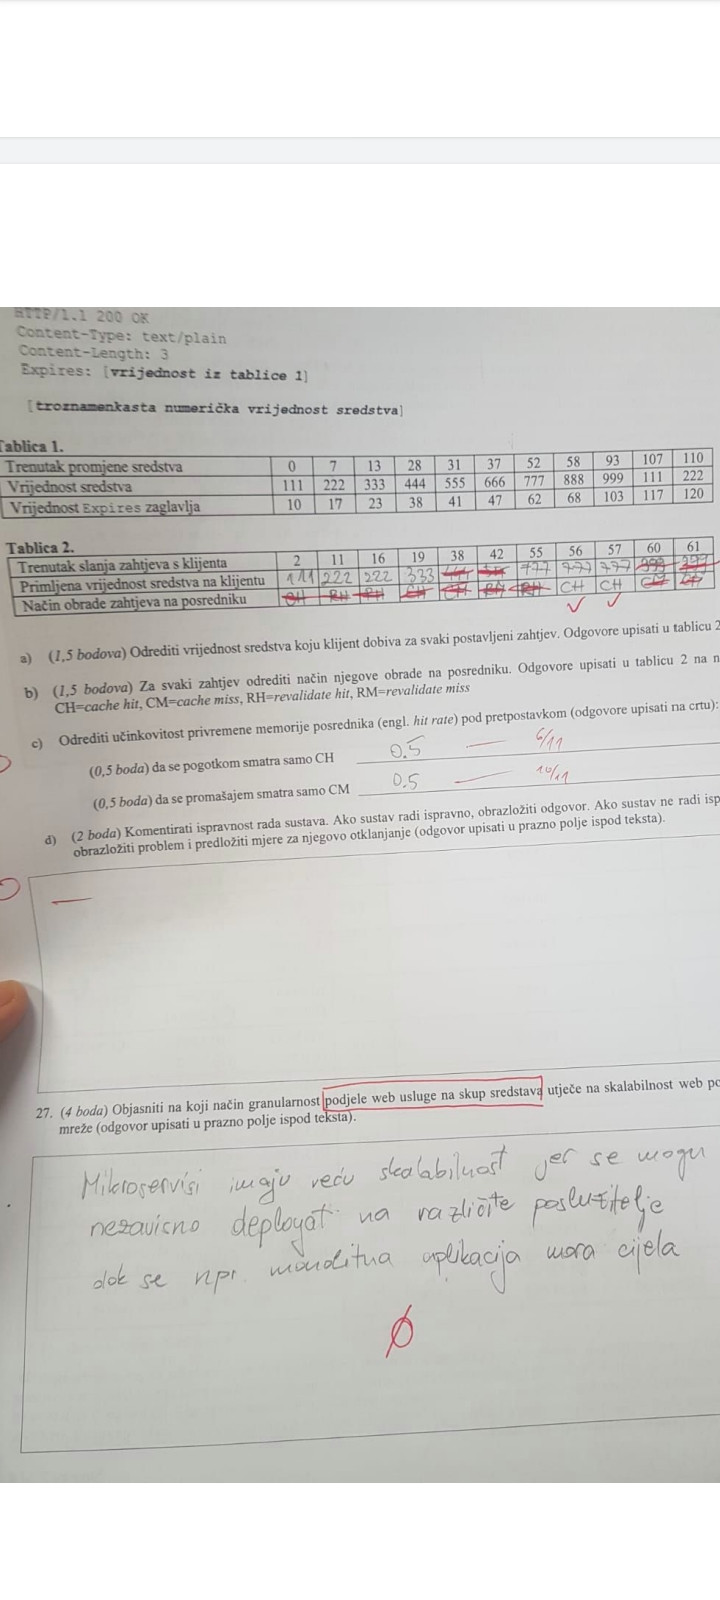 HTTP/1.1 200 OK
Content-Type: text/plain
Content-Length: 3
Expires: [vrijednost iz tablice 1]
[troznamenkasta numerička vrijednost sredstva]
Tablica 1.
Trenutak promjene sredstva 0 7 13 28 31 37 52 58 93 107 110
Vrijednost sredstva 111 222 333 444 555 666 777 888 999 111 222
Vrijednost Expires zaglavlja 10 17 23 38 41 47 62 68 103 117 120
Tablica 2.
Trenutak slanja zahtjeva s klijenta 2 11 16 19 38 42 55 56 57 60 61
Primljena vrijednost sredstva na klijentu 111 222 222 333 777 777 777
Način obrade zahtjeva na posredniku CH RH RH CH CH RH RH CH CH
a) (1,5 bodova) Odrediti vrijednost sredstva koju klijent dobiva za svaki postavljeni zahtjev. Odgovore upisati u tablicu 2
b) (1,5 bodova) Za svaki zahtjev odrediti način njegove obrade na posredniku. Odgovore upisati u tablicu 2 na n
CH=cache hit, CM=cache miss, RH=revalidate hit, RM=revalidate miss
c) Odrediti učinkovitost privremene memorije posrednika (engl. hit rate) pod pretpostavkom (odgovore upisati na crtu):
(0,5 boda) da se pogotkom smatra samo CH 0.5 — 6/11
(0,5 boda) da se promašajem smatra samo CM 0.5 — 10/11
d) (2 boda) Komentirati ispravnost rada sustava. Ako sustav radi ispravno, obrazložiti odgovor. Ako sustav ne radi isp
obrazložiti problem i predložiti mjere za njegovo otklanjanje (odgovor upisati u prazno polje ispod teksta).
27. (4 boda) Objasniti na koji način granularnost podjele web usluge na skup sredstava utječe na skalabilnost web po
mreže (odgovor upisati u prazno polje ispod teksta).
Mikroservisi imaju veću skalabilnost jer se mogu
nezavisno deployat na različite poslužitelje
dok se npr. monolitna aplikacija mora cijela
Ø